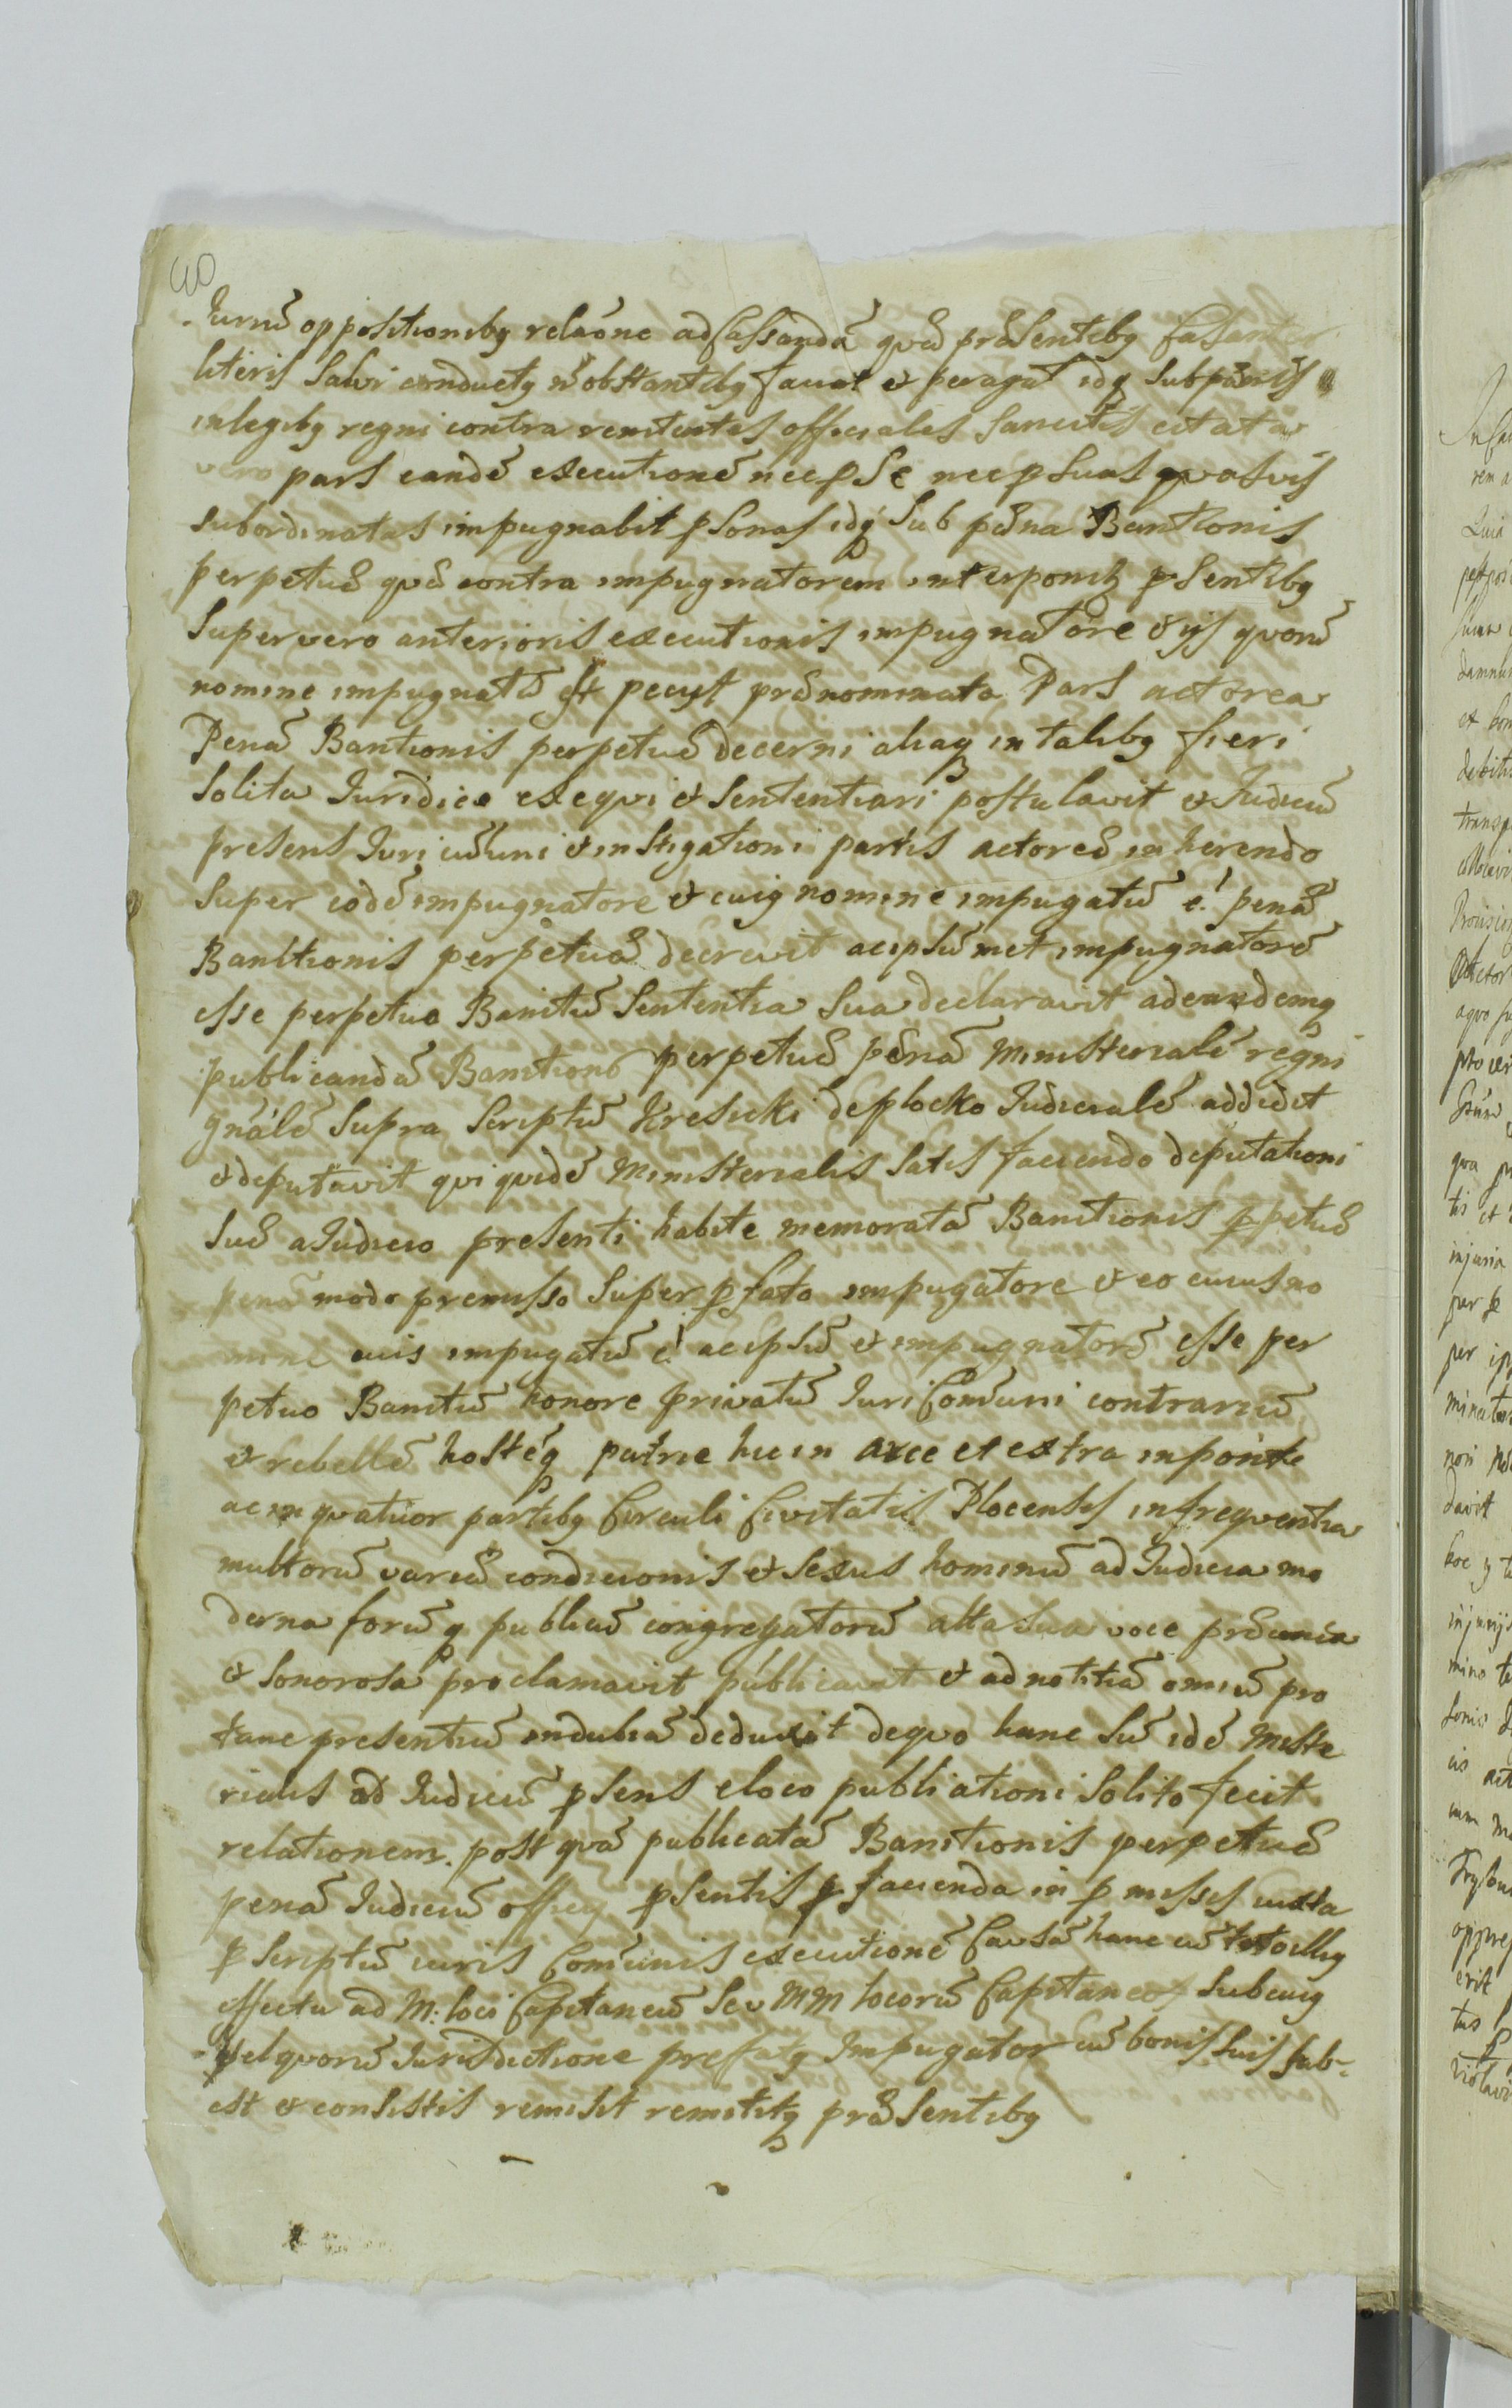 40
Iuriū oppositionibꝯ relaōne ad Cassandā quæ præsentibꝯ
literis salvi conductꝯ n̄ obstantibꝯ faciat et peragat idqꝫ sub pænis
in legibꝯ regni contra renitentes officiales sancitis citata
vero pars eandē executionē nec ꝑ se nec ꝑ suas quasvis
subordinatas impugnabit ꝑsonas idqꝫ sub pæna Banitionis
perpetuæ quæ contra impugnatorem interponitꝫ pꝛsentibꝯ
super vero anterioris executionis impugnatore et ijs quorū
nomine impugnatū est pecijt prænominata Pars actorea
Penā Banitionis perpetuæ decerni aliaqꝫ in talibꝯ fieri
solita Iuridice exequi et sententiari postulavit et Iudiciū
presens Iuri cōmuni et instigationi partis actoreæ inherendo
super eodē impugnatore et cuiꝯ nomine impugatū ē. penā
Banitionis perpetuæ decrevit ac ipsūmet impugnatorē
esse perpetuo Banitū sententia sua declaravit ad eandemqꝫ
publicandā Banitionis perpetuæ pænā Ministerialē regni
gn̄alē supra scriptū Kresicki de Plocko Iudicialē addidit
et deputavit qui quidē Ministerialis satis faciendo deputationi
suæ a Iudicio presenti habite memoratā Banitionis ꝑpetuæ
penā modo premisso super pꝛfato impugatore et eo cuius no
mine impugatū ē. ac ipsū et impugnatorē esse per
petuo Banitū honore privatū Iuri Com̄uni contrariū
et rebellē hostēqꝫ patrie hic in arce et extra in ponte
ac in quatuor partibꝯ Circuli Civitatis Plocensis in frequentia
multorū variæ condicionis et sexus hominū ad Iudicia mo
derna forūqꝫ publicū congregatorū alta sua voce præconia
et sonorosa proclamavit publicavit et ad notitiā omniū pro
tunc presentiū indubiā deduxit de quo hanc suā idē Ministe
rialis ad Iudiciū pꝛsens e loco publicationi solito fecit
relationem. post quā publicatā Banitionis perpetuæ
penā Iudiciū officij pꝛsentis pꝛ facienda in pꝛmissis iuxta
pꝛscriptū iuris Com̄unis executionē Causā hanc cū toto illiꝯ
effectu ad M: loci Capitaneū seu MM locorū Capitaneos sub cuiꝯ
vel quorū Iurisdictione prefatꝯ Impugator cū bonis suis sub-
est et consistit remisit remittitqꝫ præsentibꝯ